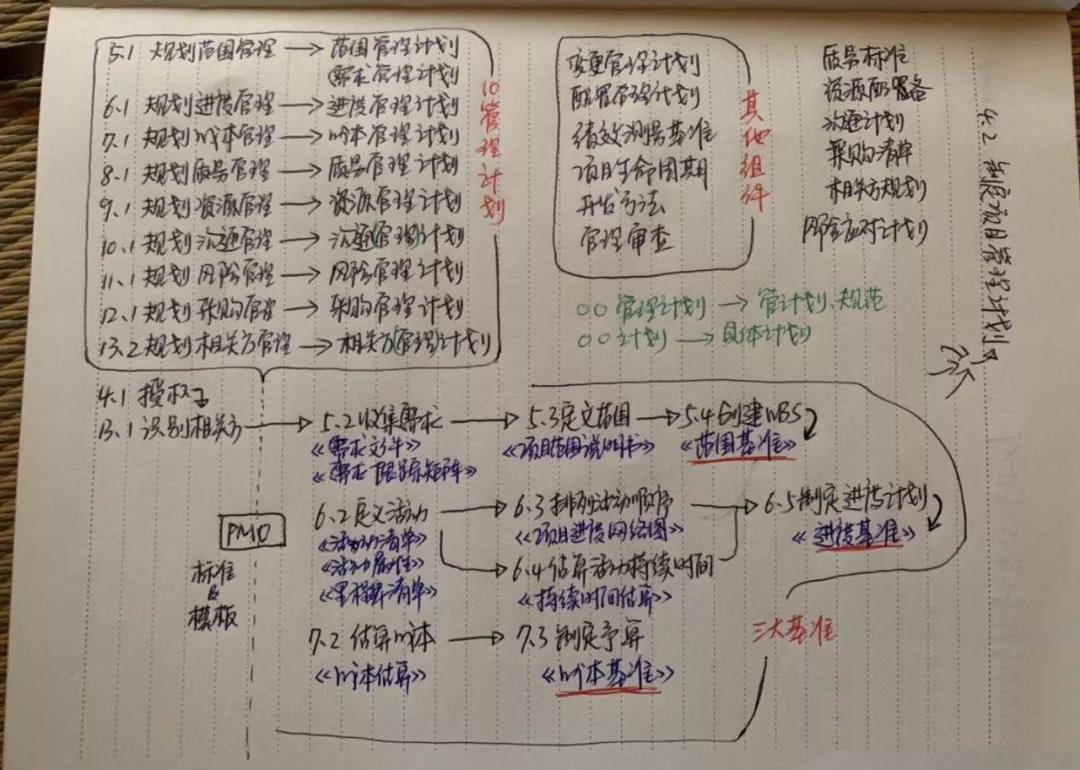 5.1 规划范围管理 → 范围管理计划
需求管理计划
6.1 规划进度管理 → 进度管理计划
7.1 规划成本管理 → 成本管理计划
8.1 规划质量管理 → 质量管理计划
9.1 规划资源管理 → 资源管理计划
10.1 规划沟通管理 → 沟通(管理)计划
11.1 规划风险管理 → 风险管理计划
12.1 规划采购管理 → 采购管理计划
13.2 规划相关方管理 → 相关方(管理)计划
10管理计划
变更管理计划
配置管理计划
绩效测量基准
项目生命周期
开发方法
管理审查
其他组件
质量标准
资源配置
沟通计划
采购清单
相关方规划
风险应对计划
4.2 制定项目管理计划
○○管理计划 → 管计划、规范
○○计划 → 具体计划
4.1 授权
13.1 识别相关方 → 5.2 收集需求 → 5.3 定义范围 → 5.4 创建WBS
《需求文件》 《项目范围说明书》 《范围基准》
《需求跟踪矩阵》
6.2 定义活动 → 6.3 排列活动顺序 → 6.5 制定进度计划
《活动清单》 《项目进度网络图》 《进度基准》
《活动属性》 → 6.4 估算活动持续时间
《里程碑清单》 《持续时间估算》
PMO
标准
&
模板
7.2 估算成本 → 7.3 制定预算
《成本估算》 《成本基准》
三大基准